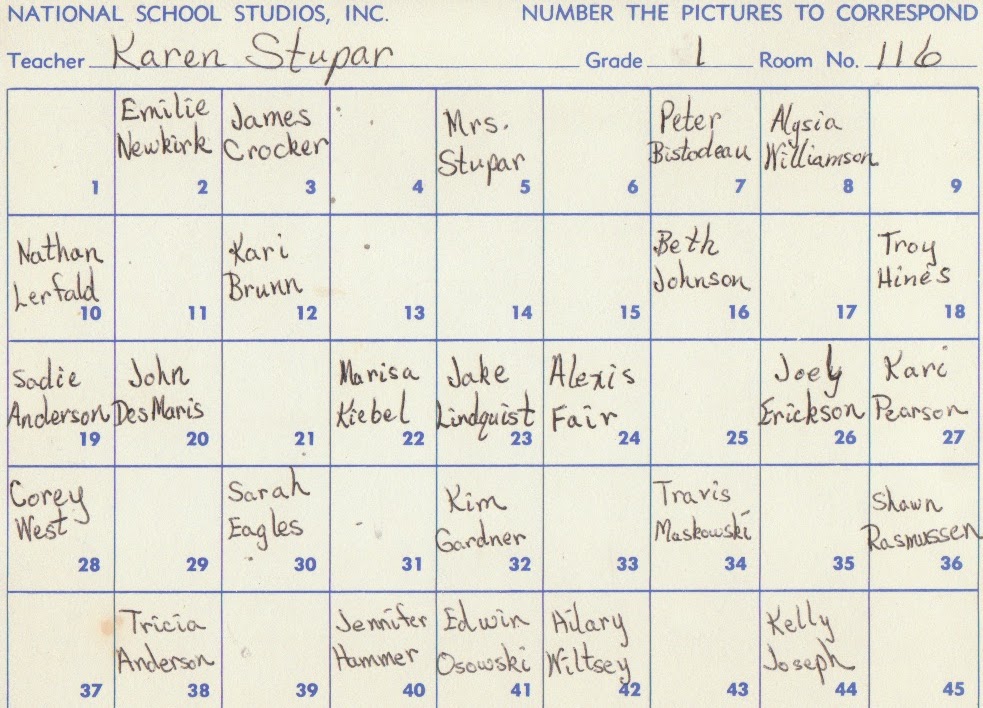 NATIONAL SCHOOL STUDIOS, INC. NUMBER THE PICTURES TO CORRESPOND
Teacher Karen Stupar Grade 1 Room No. 116
Emilie James Mrs. Peter Alysia
Newkirk Crocker Stupar Bistodeau Williamson
1 2 3 4 5 6 7 8 9
Nathan Kari Beth Troy
Lerfald Brunn Johnson Hines
10 11 12 13 14 15 16 17 18
Sadie John Marisa Jake Alexis Joely Kari
Anderson DesMaris Kiebel Lindquist Fair Erickson Pearson
19 20 21 22 23 24 25 26 27
Corey Sarah Kim Travis Shawn
West Eagles Gardner Maskowski Rasmussen
28 29 30 31 32 33 34 35 36
Tricia Jennifer Edwin Hilary Kelly
Anderson Hammer Osowski Wiltsey Joseph
37 38 39 40 41 42 43 44 45